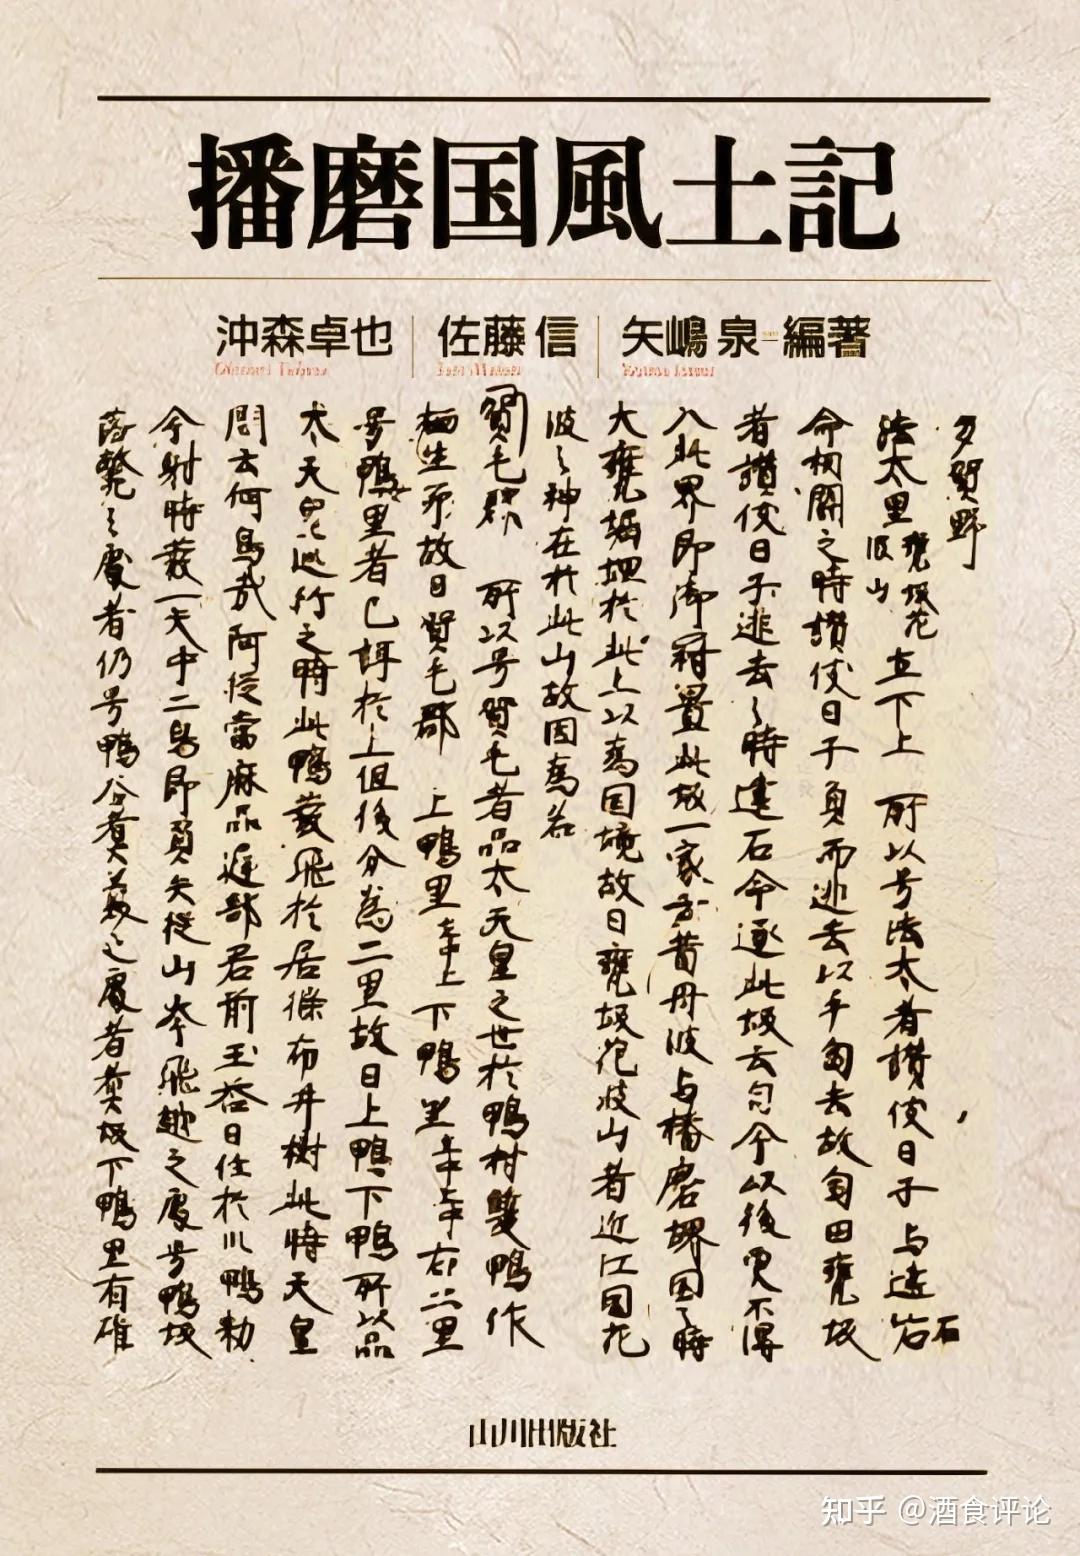 播磨国風土記
沖森卓也 佐藤 信 矢嶋 泉=編著
Okimori Takuya Sato Makoto Yajima Izumi
夕賀野
法太里 甕坂花波山 土下上 所以号法太者讃伎日子与建石
命相闘之時讃伎日子負而逃去以手匐去故匐田甕坂
者讃伎日子逃去之時建石命逐此坂云自今以後更不得
入此界即御冠置此坂一家云昔丹波与播磨堺国之時
大甕掘埋於此上以為国境故曰甕坂花波山者近江国花
波之神在於此山故因為名
賀毛郡 所以号賀毛者品太天皇之世於鴨村双鴨作
栖生卵故曰賀毛郡 上鴨里土中上 下鴨里土中中 右二里
号鴨里者已詳於上但後分為二里故曰上鴨下鴨所以品
太天皇巡行之時此鴨発飛於居條布井樹此時天皇
問云何鳥哉阿従当麻品遅部君前玉答曰住於川鴨勅
令射時発一矢中二鳥即負矢従山岑飛越之処号鴨坂
落斃之処者仍号鴨谷煮羹之処者煮坂下鴨里有碓
山川出版社
知乎 @酒食评论